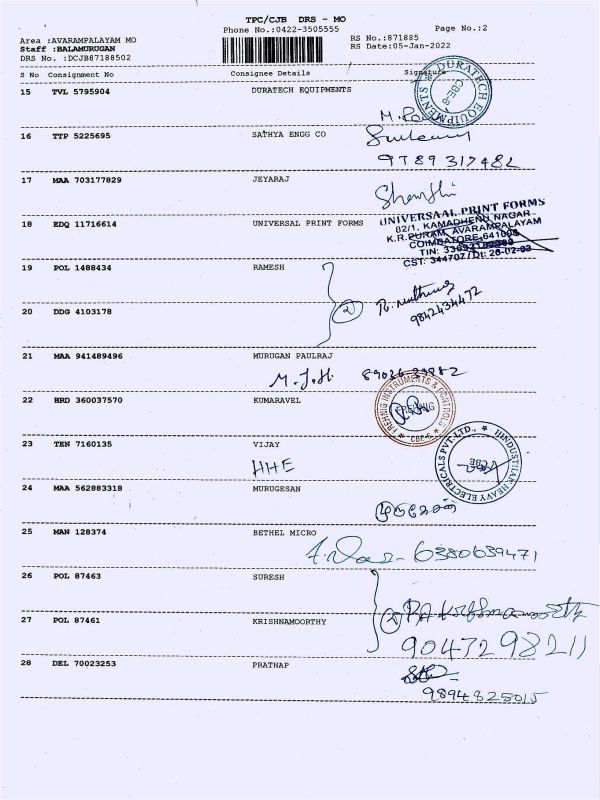 TPC/CJB DRS - MO
Phone No.:0422-3505555
Page No.:2
Area :AVARAMPALAYAM MO
RS No.:871885
Staff :BALAMURUGAN
RS Date:05-Jan-2022
DRS No. :DCJB87188502
S No Consignment No Consignee Details Signature
15 TVL 5795904 DURATECH EQUIPMENTS
DURATECH EQUIPMENTS
CBE-6
16 TTP 5225695 SATHYA ENGG CO
9789317482
17 MAA 703177829 JEYARAJ
18 EDQ 11716614 UNIVERSAL PRINT FORMS
UNIVERSAAL PRINT FORMS
82/1, KAMADHENU NAGAR
K.R.PURAM, AVARAMPALAYAM
COIMBATORE-641006
TIN:
CST: 344707/Dt: 26-02-93
19 POL 1488434 RAMESH
20 DDG 4103178
2
9842434472
21 MAA 941489496 MURUGAN PAULRAJ
22 HRD 360037570 KUMARAVEL
INSTRUMENTS & CONTROLS
CBE-6
23 TEN 7160135 VIJAY
HHE
HINDUSTHAN HEAVY ELECTRICALS PVT. LTD.,
CBE
24 MAA 562883318 MURUGESAN
முருகேசன்
25 MAN 128374 BETHEL MICRO
6380639471
26 POL 87463 SURESH
27 POL 87461 KRISHNAMOORTHY
2
9047298211
28 DEL 70023253 PRATHAP
9894825015